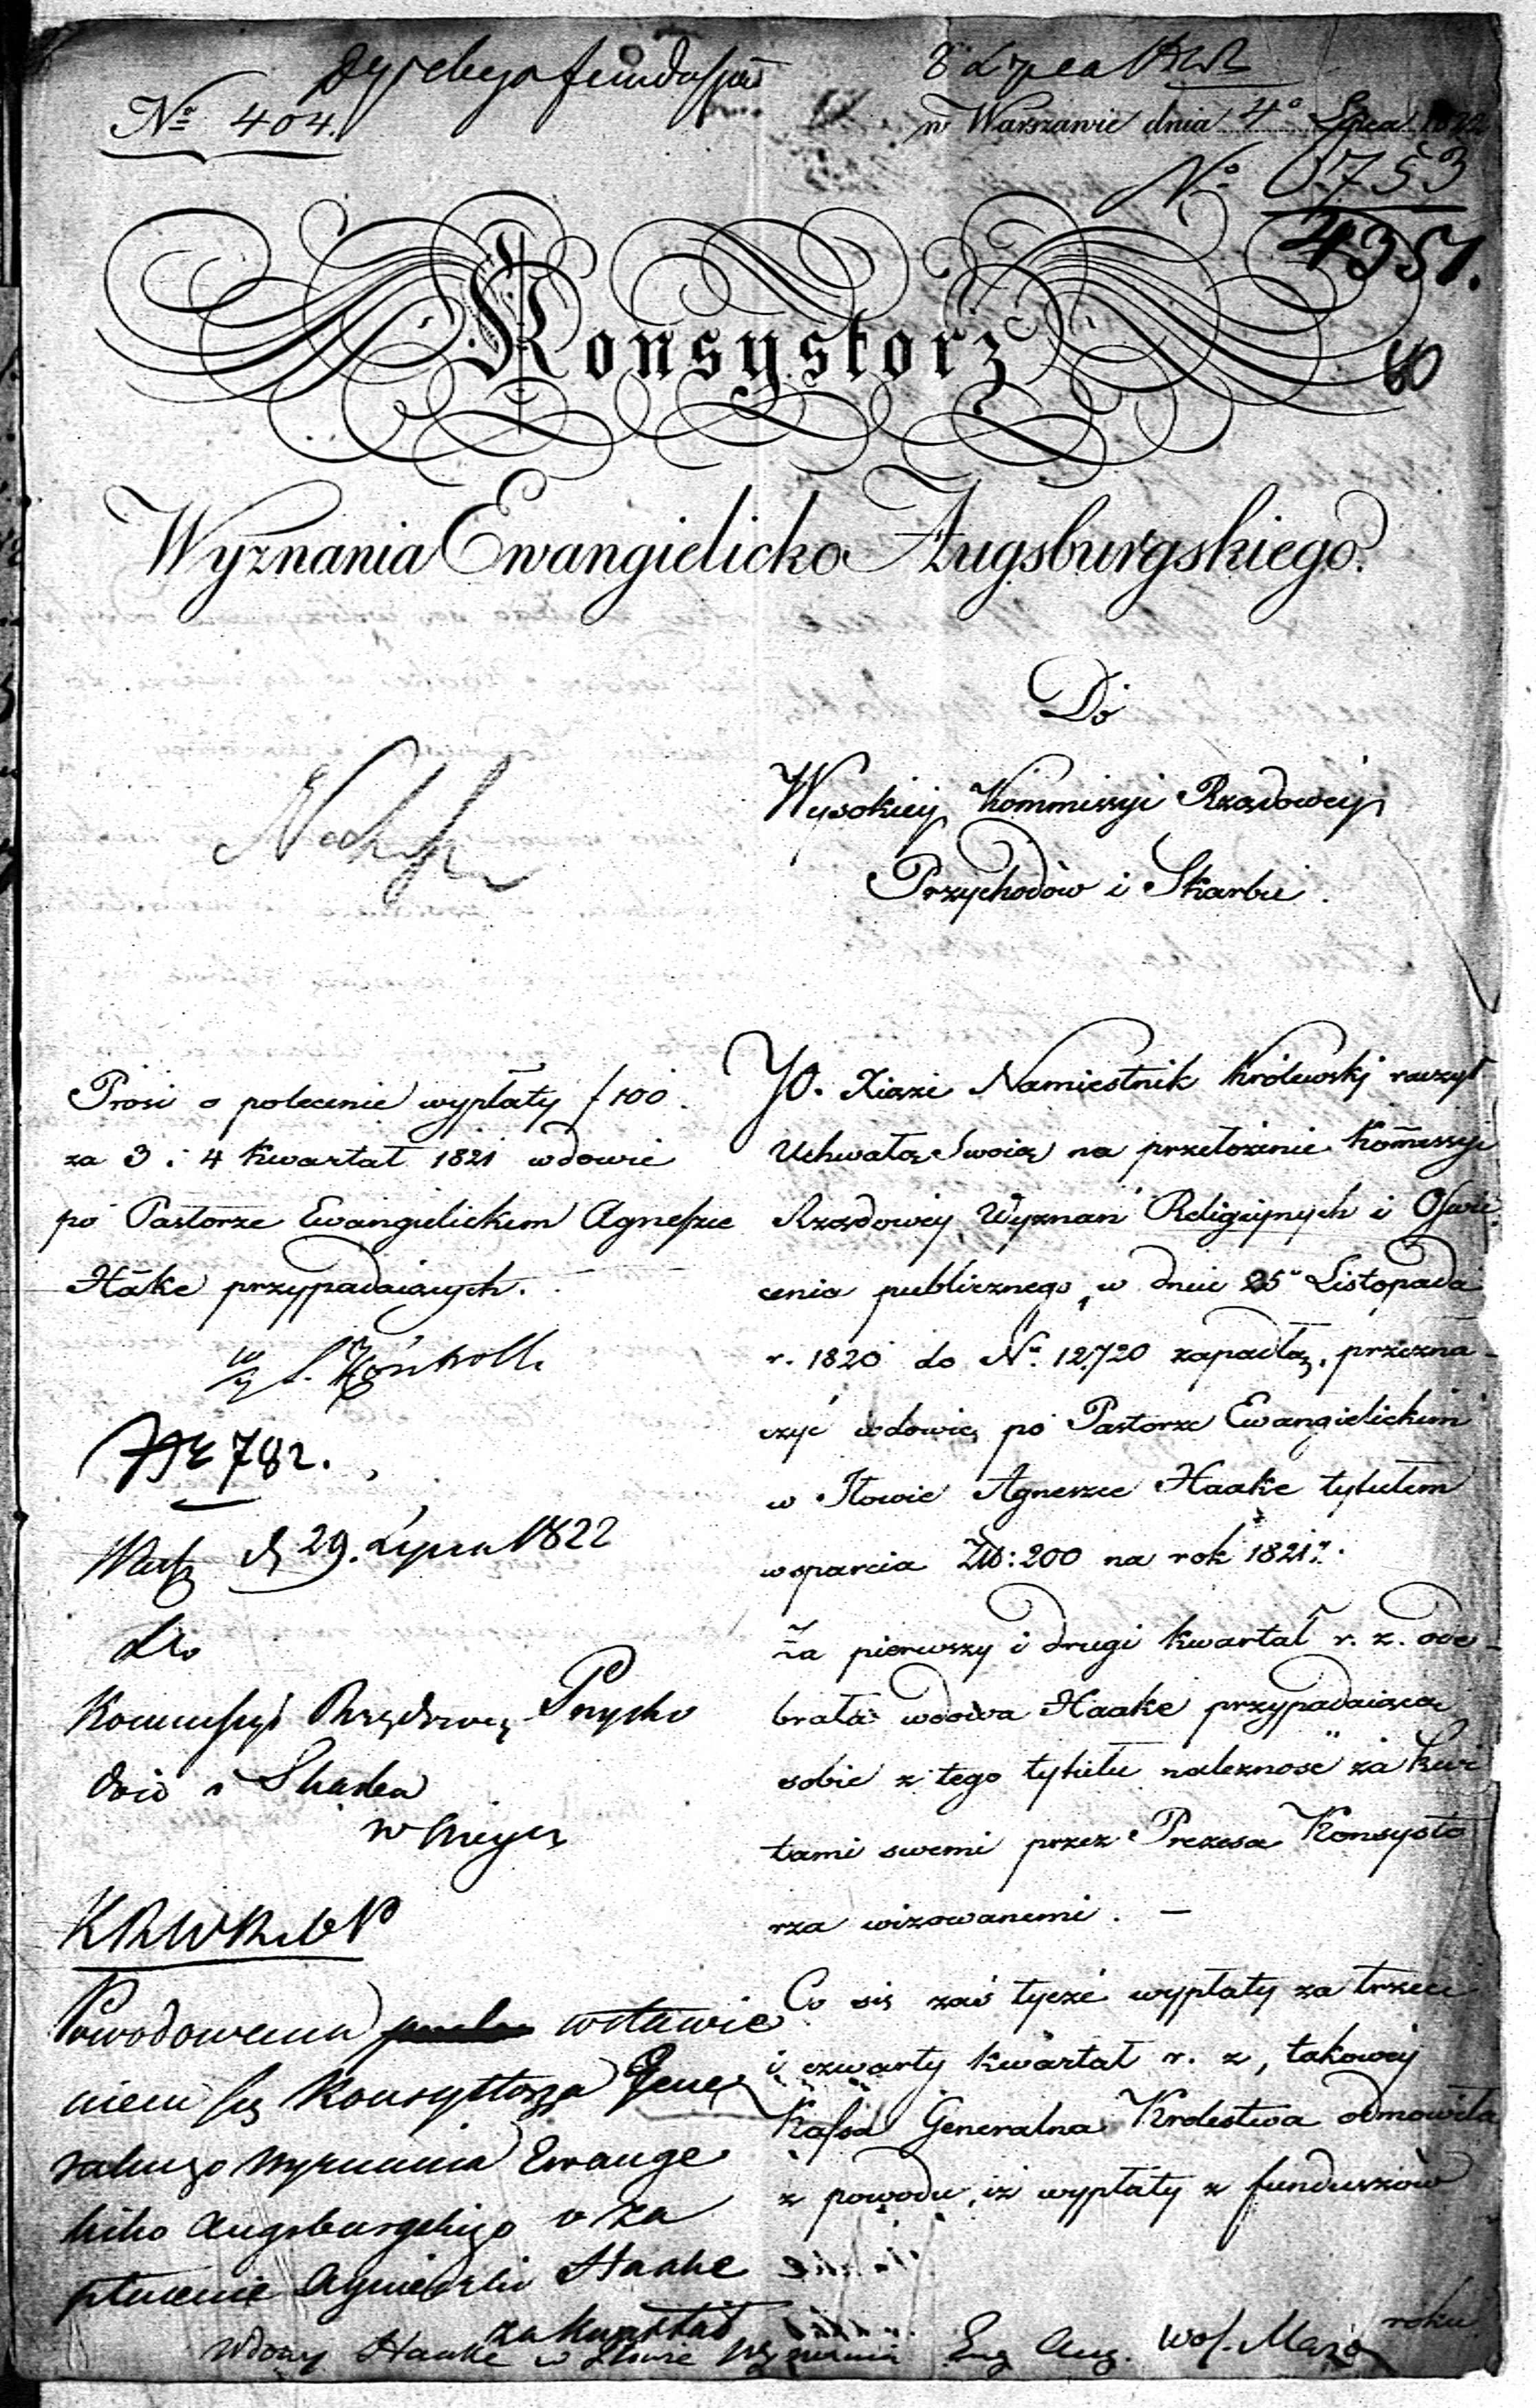 Nº 404.
8 Lipca
w Warszawie dnia 4º Lipca 1822
Nº 6753
4351.
60
Konsystorz
Wyznania Ewangielicko Augsburgskiego.
Do
Wysokiey Kommissyi Rządowey
Przychodów i Skarbu.
Prosi o polecenie wypłaty f 100.
za 3 i 4 kwartał 1821 wdowie
po Pastorze Ewangielickim Agneszce
Hake przypadaiących.
782.
d 29. Lipca 1822
Do
Kommissyi Rządowey Przycho
dów i Skarbu
w mieyscu
KRWR.OP
Powodowana wstawie
niem się Konsystorza Gene
ralnego Wyznania Ewange
licko Augsburgskiego o za
płacenie Agnieszki Haake
za kwartał
Wdowy Haake w Iłowie Wyznania Ewg Aug. Wof. Mazo
JO. Xiąże Namiestnik Królewski raczył
Uchwałą Swoią na przełożenie Kommissyi
Rządowey Wyznań Religiynych i Oświe
cenia publicznego, w dniu 25º Listopada
r. 1820 do Nº 12,720 zapadłą, przezna-
czyć wdowie po Pastorze Ewangielickim
w Iłowie Agneszce Haake tytułem
wsparcia Złp: 200 na rok 1821.
Za pierwszy i drugi kwartał r. z. ode-
brała wdowa Haake przypadaiącą
sobie z tego tytułu należność za kwi
tami swemi przez Prezesa Konsysto
rza wizowanemi. —
Co się zaś tycze wypłaty za trzeci
i czwarty kwartał r. z, takowey
Kassa Generalna Królestwa odmówiła
z powodu, iż wypłaty z funduszów
roku